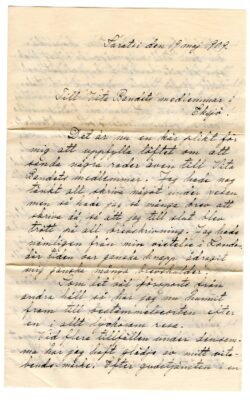 Saratsi den 19 maj 1909.
Till Vita Bandets medlemmar i
Eksjö.
Det är nu en kär plikt för
mig att uppfylla löftet om att
sända några rader även till Vita
Bandets medlemmar. Jag hade nog
tänkt att skriva något under resan
men så hade jag så många brev att
skriva så, så att jag till slut blev
trött på all brevskrivning. Jag hade
nämligen från min vistelse i London,
där tiden var ganska knapp ådragit
mig ganska många brevskulder.
Som det nu försports från
andra håll så har jag nu hunnit
fram till bestämmelseorten efter
en i allt lyckosam resa.
Vid flera tillfällen under densam-
ma har jag haft glädje av mitt vita-
bands-märke. Efter gudstjänsten i en